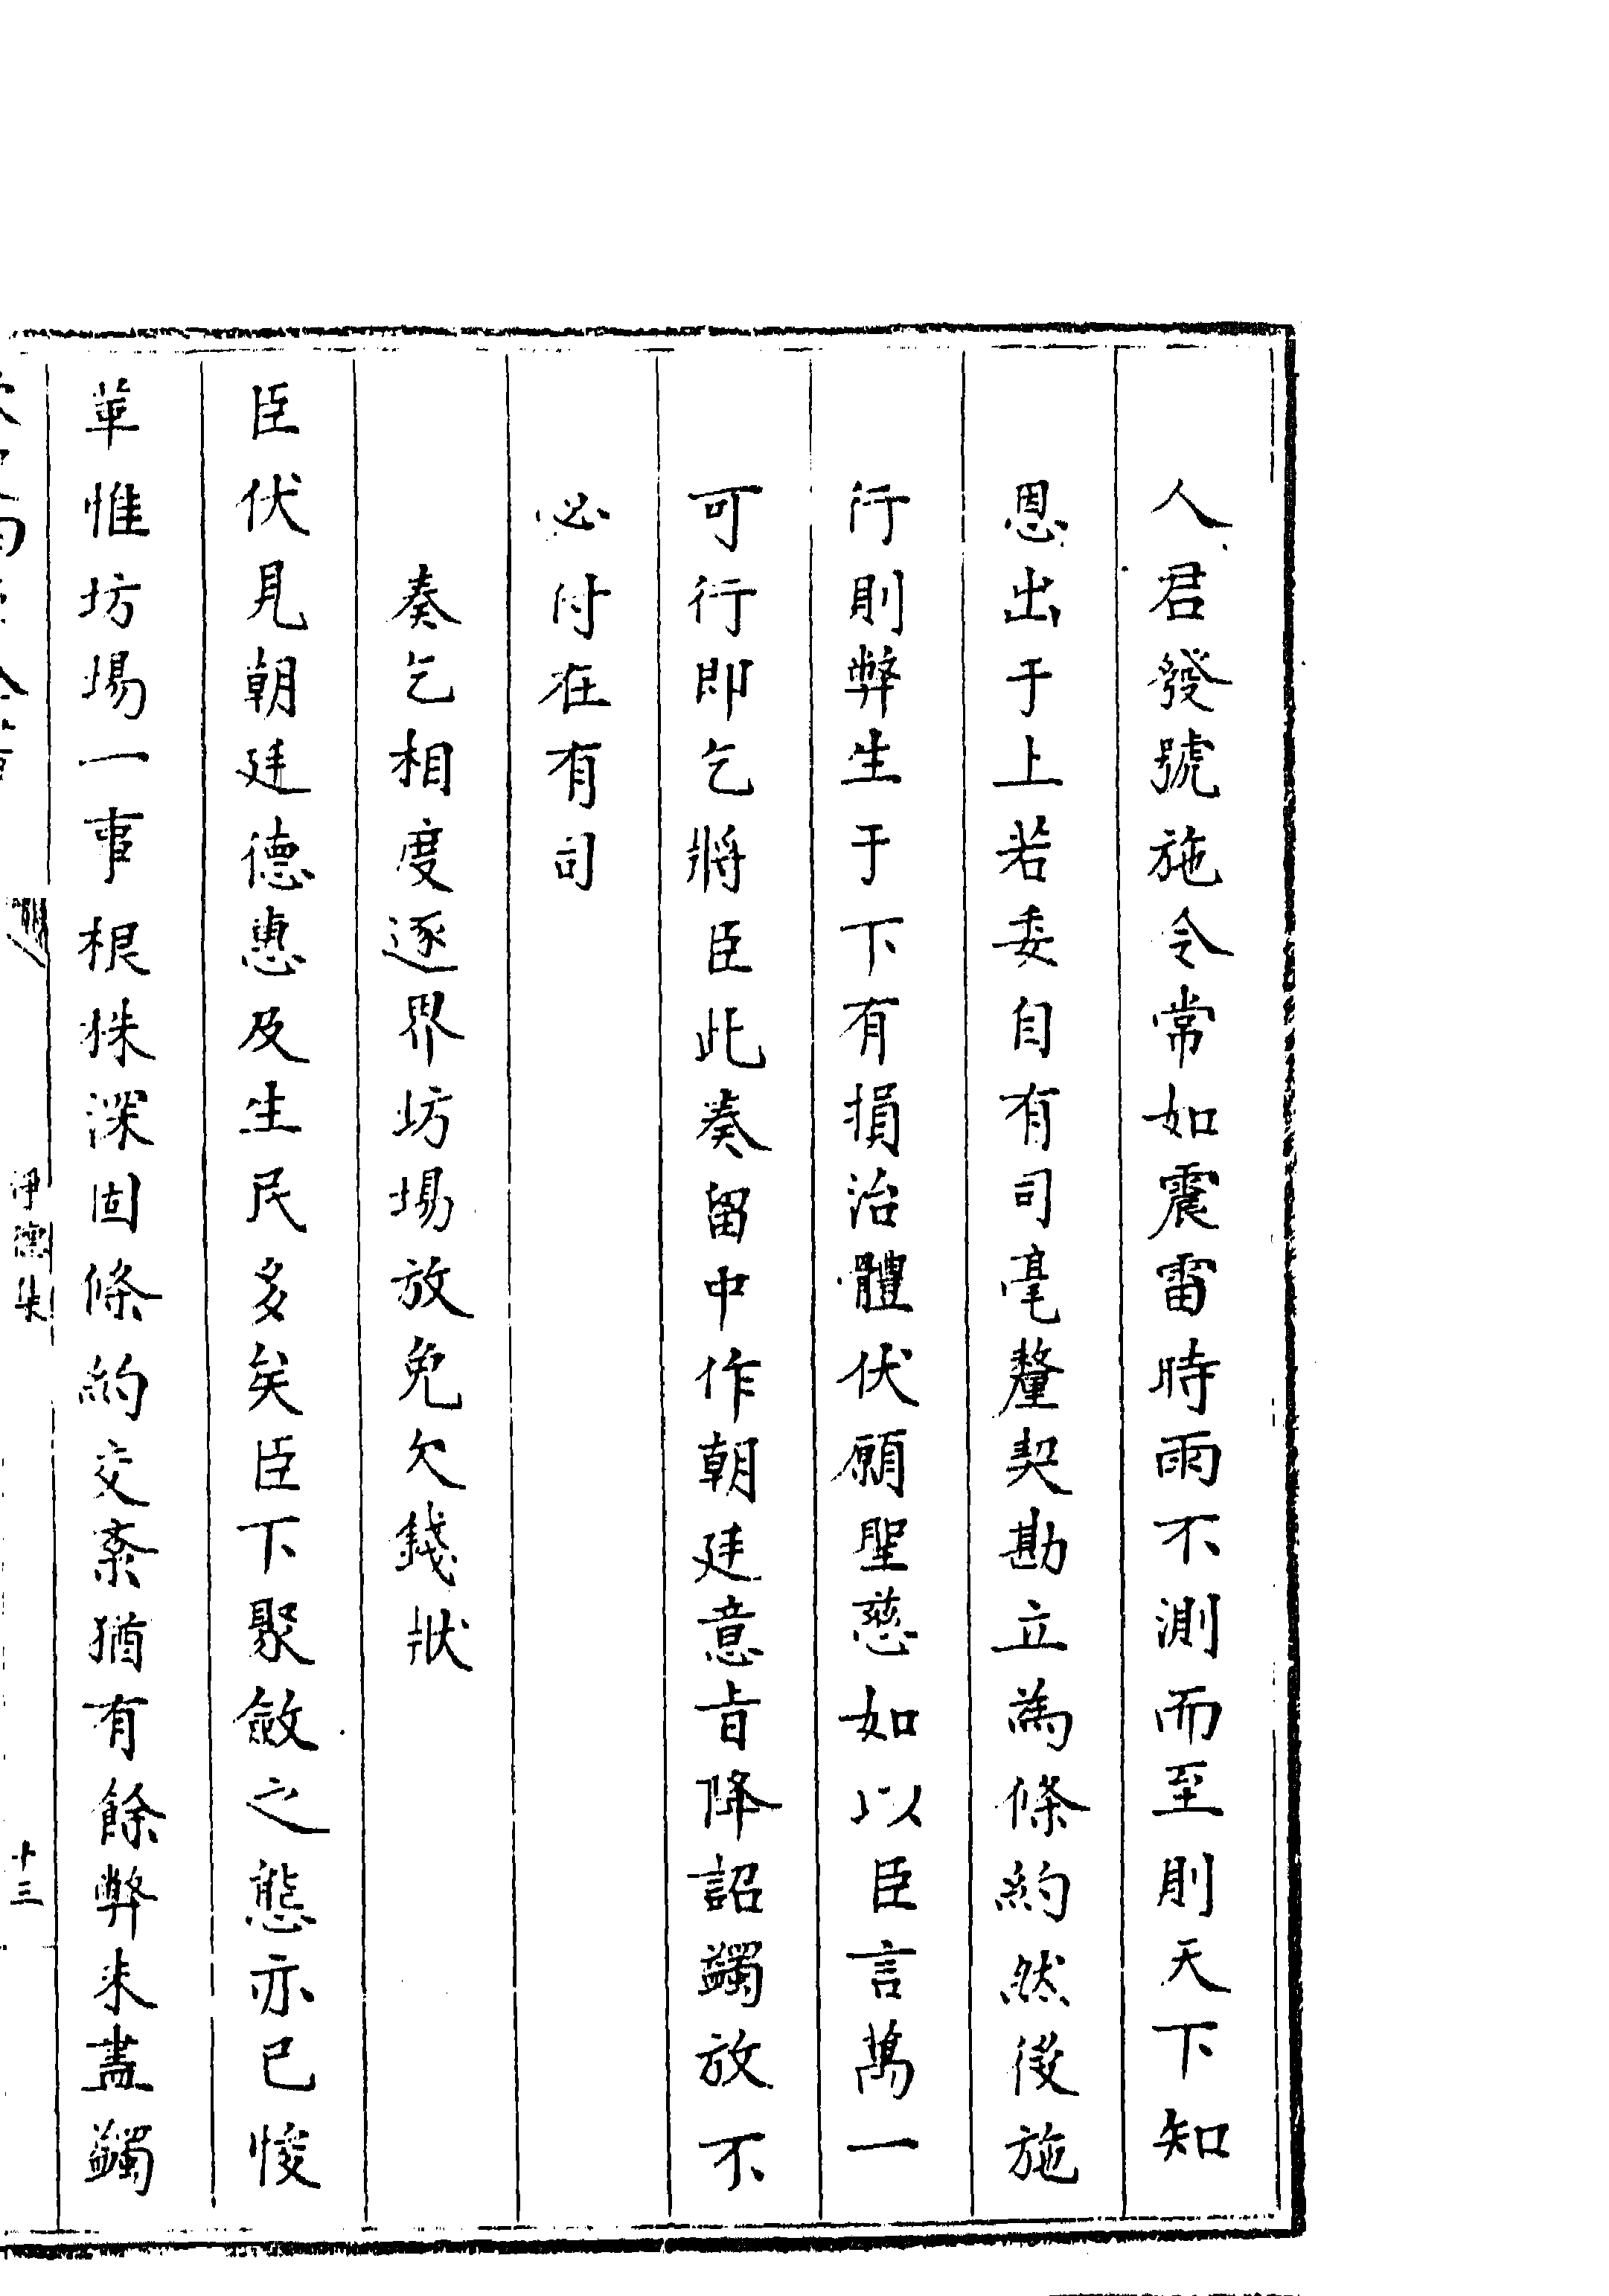 人君發號施令常如震雷時雨不測而至則天下知
恩出于上若委自有司毫釐契勘立為條約然後施
行則弊生于下有損治體伏願聖慈如以臣言萬一
可行即乞將臣此奏留中作朝廷意旨降詔蠲放不
必付在有司
奏乞相度逐界坊場放免欠錢狀
臣伏見朝廷德惠及生民多矣臣下聚斂之態亦已悛
革惟坊場一事根株深固條約交紊猶有餘弊未盡蠲
淨德集
十三